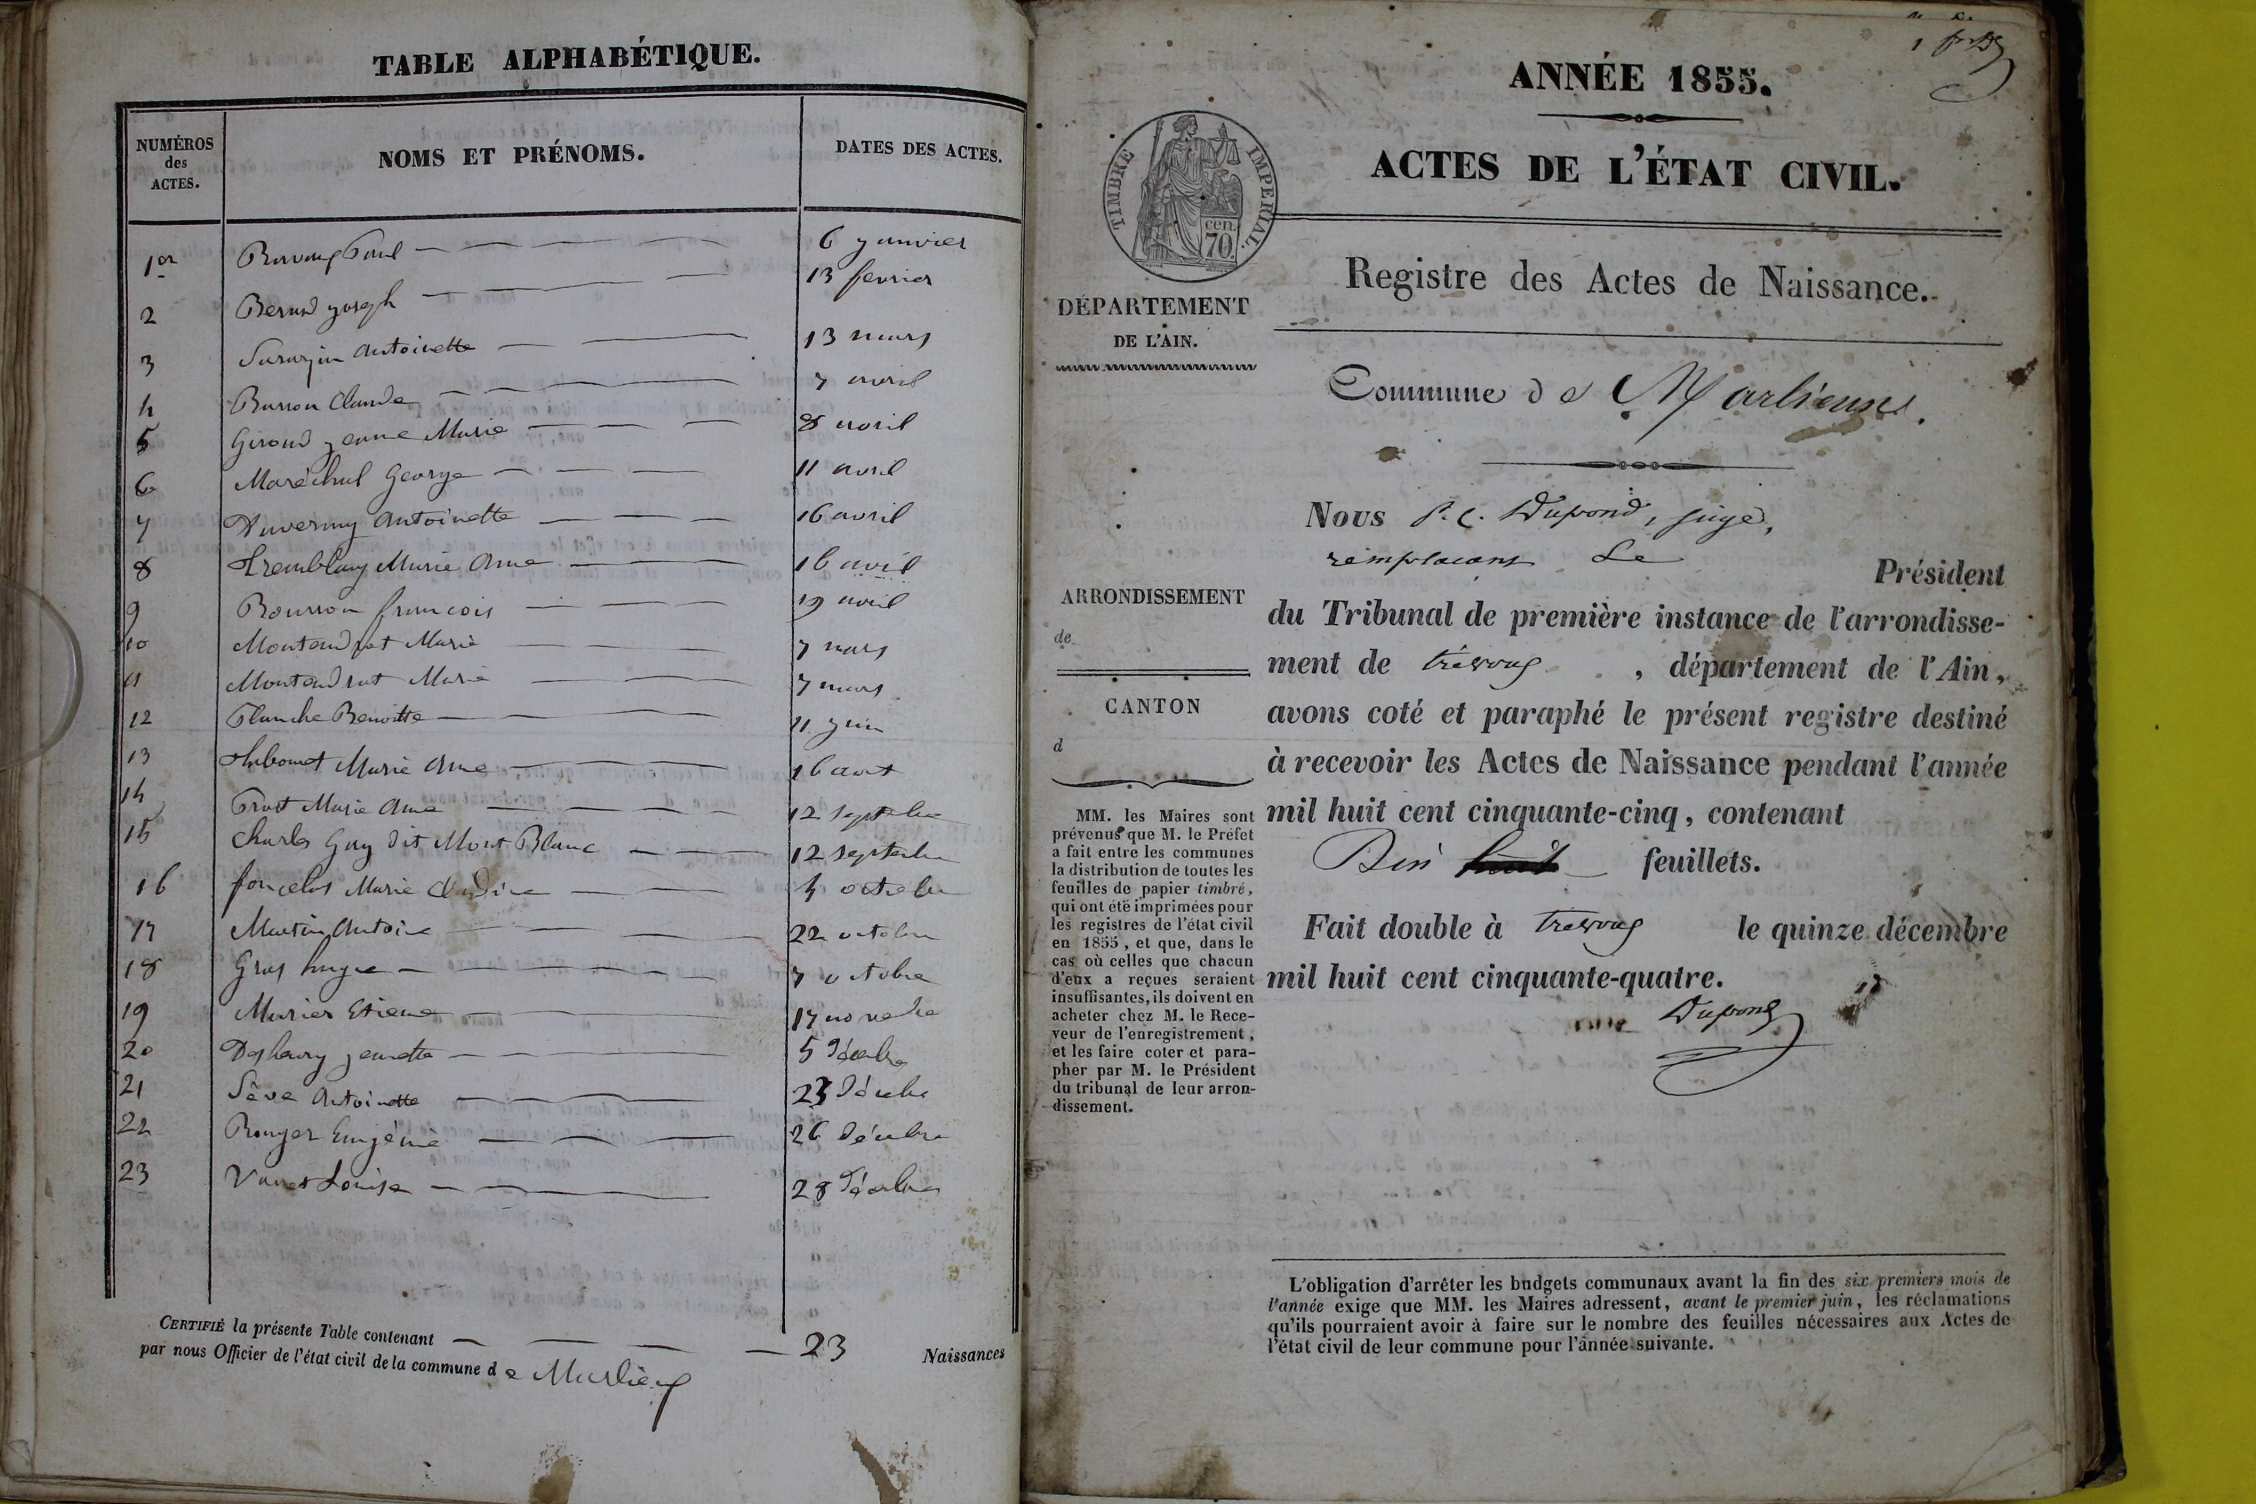 TABLE ALPHABÉTIQUE.
NUMÉROS des ACTES.
NOMS ET PRÉNOMS.
DATES DES ACTES.
1er Paul 6 janvier
2 joseph 13 fevrier
3 Antoinette 13 mars
4 Claude 7 avril
5 Giroud jeanne Marie 8 avril
6 Maréchal George 11 avril
7 Duvernay Antoinette 16 avril
8 Tremblay Marie Anne 16 avril
9 Bourron francois 19 avril
10 Montandrat Marie 7 mars
11 Montandrat Marie 7 mars
12 Planche Benoitte 11 juin
13 Marie Anne 16 aout
14 Prost Marie Anne 12 septebre
15 Charles Guy dit Mont Blanc 12 septebre
16 Marie Claudine 4 octobre
17 Martin Antoine 22 octobre
18 Gras 7 octobre
19 Murier Etiene 17 novebre
20 jeanette 5 décebre
21 Sève Antoinette 23 décebre
22 Ronger Eugénie 26 décebre
23 Louise 28 décebre
CERTIFIÉ la présente Table contenant 23 Naissances
par nous Officier de l'état civil de la commune de Marlieux
ANNÉE 1855.
ACTES DE L'ÉTAT CIVIL.
TIMBRE IMPERIAL.
cen.
70
Registre des Actes de Naissance.
DÉPARTEMENT
DE L'AIN.
Commune de Marlieux.
Nous P. C. Dupond, juge,
remplacant Le Président
du Tribunal de première instance de l'arrondisse-
ment de trévoux, département de l'Ain,
avons coté et paraphé le présent registre destiné
à recevoir les Actes de Naissance pendant l'année
mil huit cent cinquante-cinq, contenant
feuillets.
Fait double à trevoux le quinze décembre
mil huit cent cinquante-quatre.
Dupond
ARRONDISSEMENT
de
CANTON
d
MM. les Maires sont
prévenus que M. le Préfet
a fait entre les communes
la distribution de toutes les
feuilles de papier timbré,
qui ont été imprimées pour
les registres de l'état civil
en 1855, et que, dans le
cas où celles que chacun
d'eux a reçues seraient
insuffisantes, ils doivent en
acheter chez M. le Rece-
veur de l'enregistrement,
et les faire coter et para-
pher par M. le Président
du tribunal de leur arron-
dissement.
L'obligation d'arrêter les budgets communaux avant la fin des six premiers mois de
l'année exige que MM. les Maires adressent, avant le premier juin, les réclamations
qu'ils pourraient avoir à faire sur le nombre des feuilles nécessaires aux Actes de
l'état civil de leur commune pour l'année suivante.